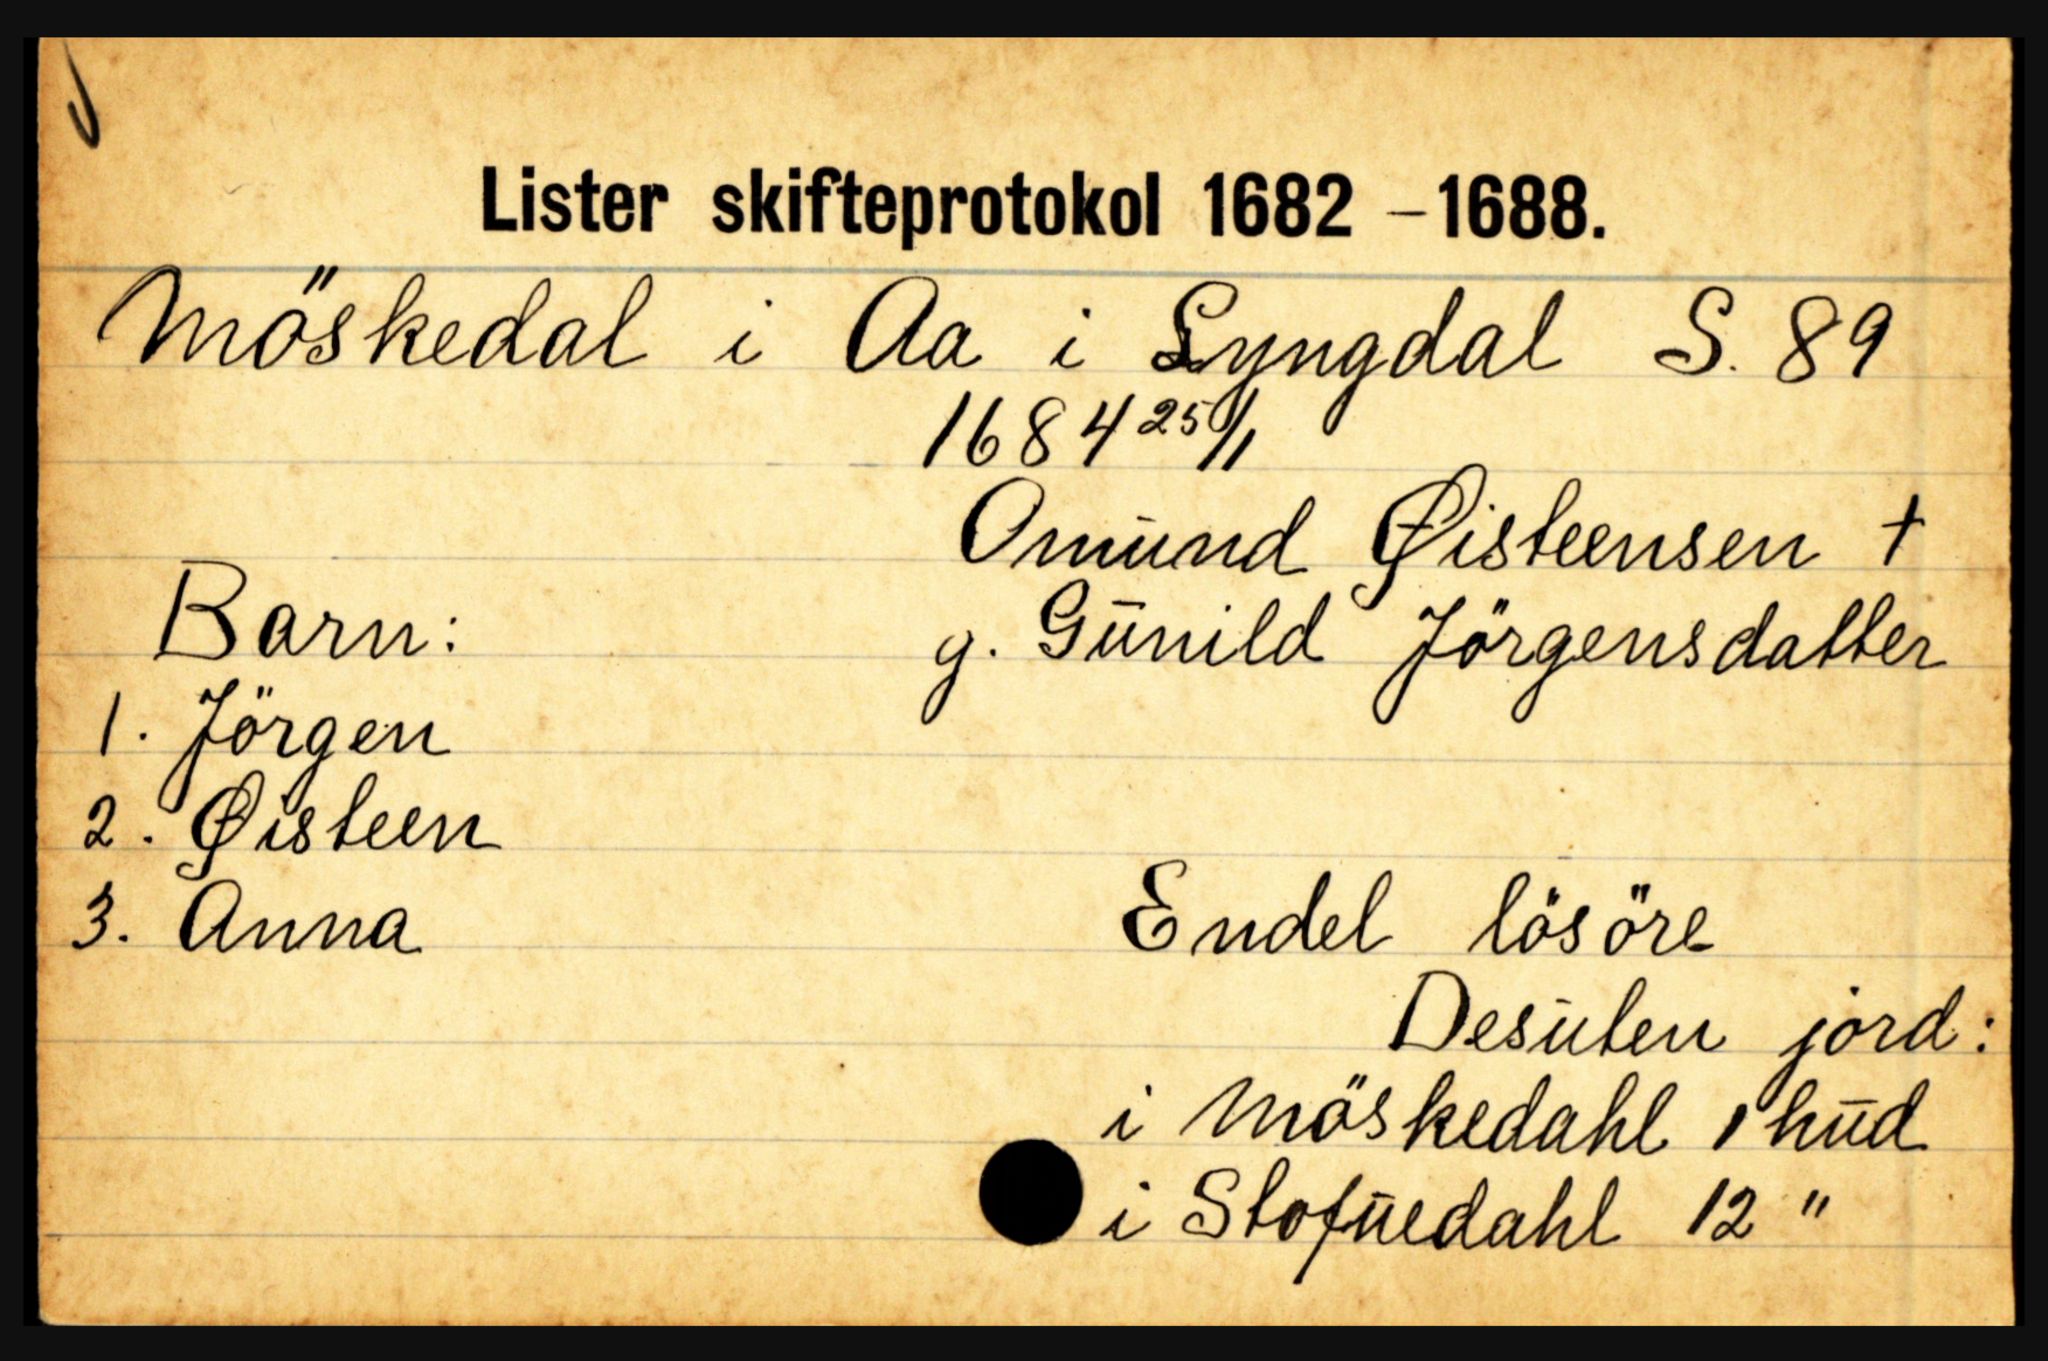 Lister skifteprotokol 1682 – 1688.
Möskedal i Aa i Lyngdal S. 89
1684 25/11
Omund Øisteensen †
Barn: g. Gunild Jörgensdatter
1. Jörgen
2. Øisteen
3. Anna
Endel lösöre
Desuten jord:
i Möskedahl 1 hud
i Stofuedahl 12 "